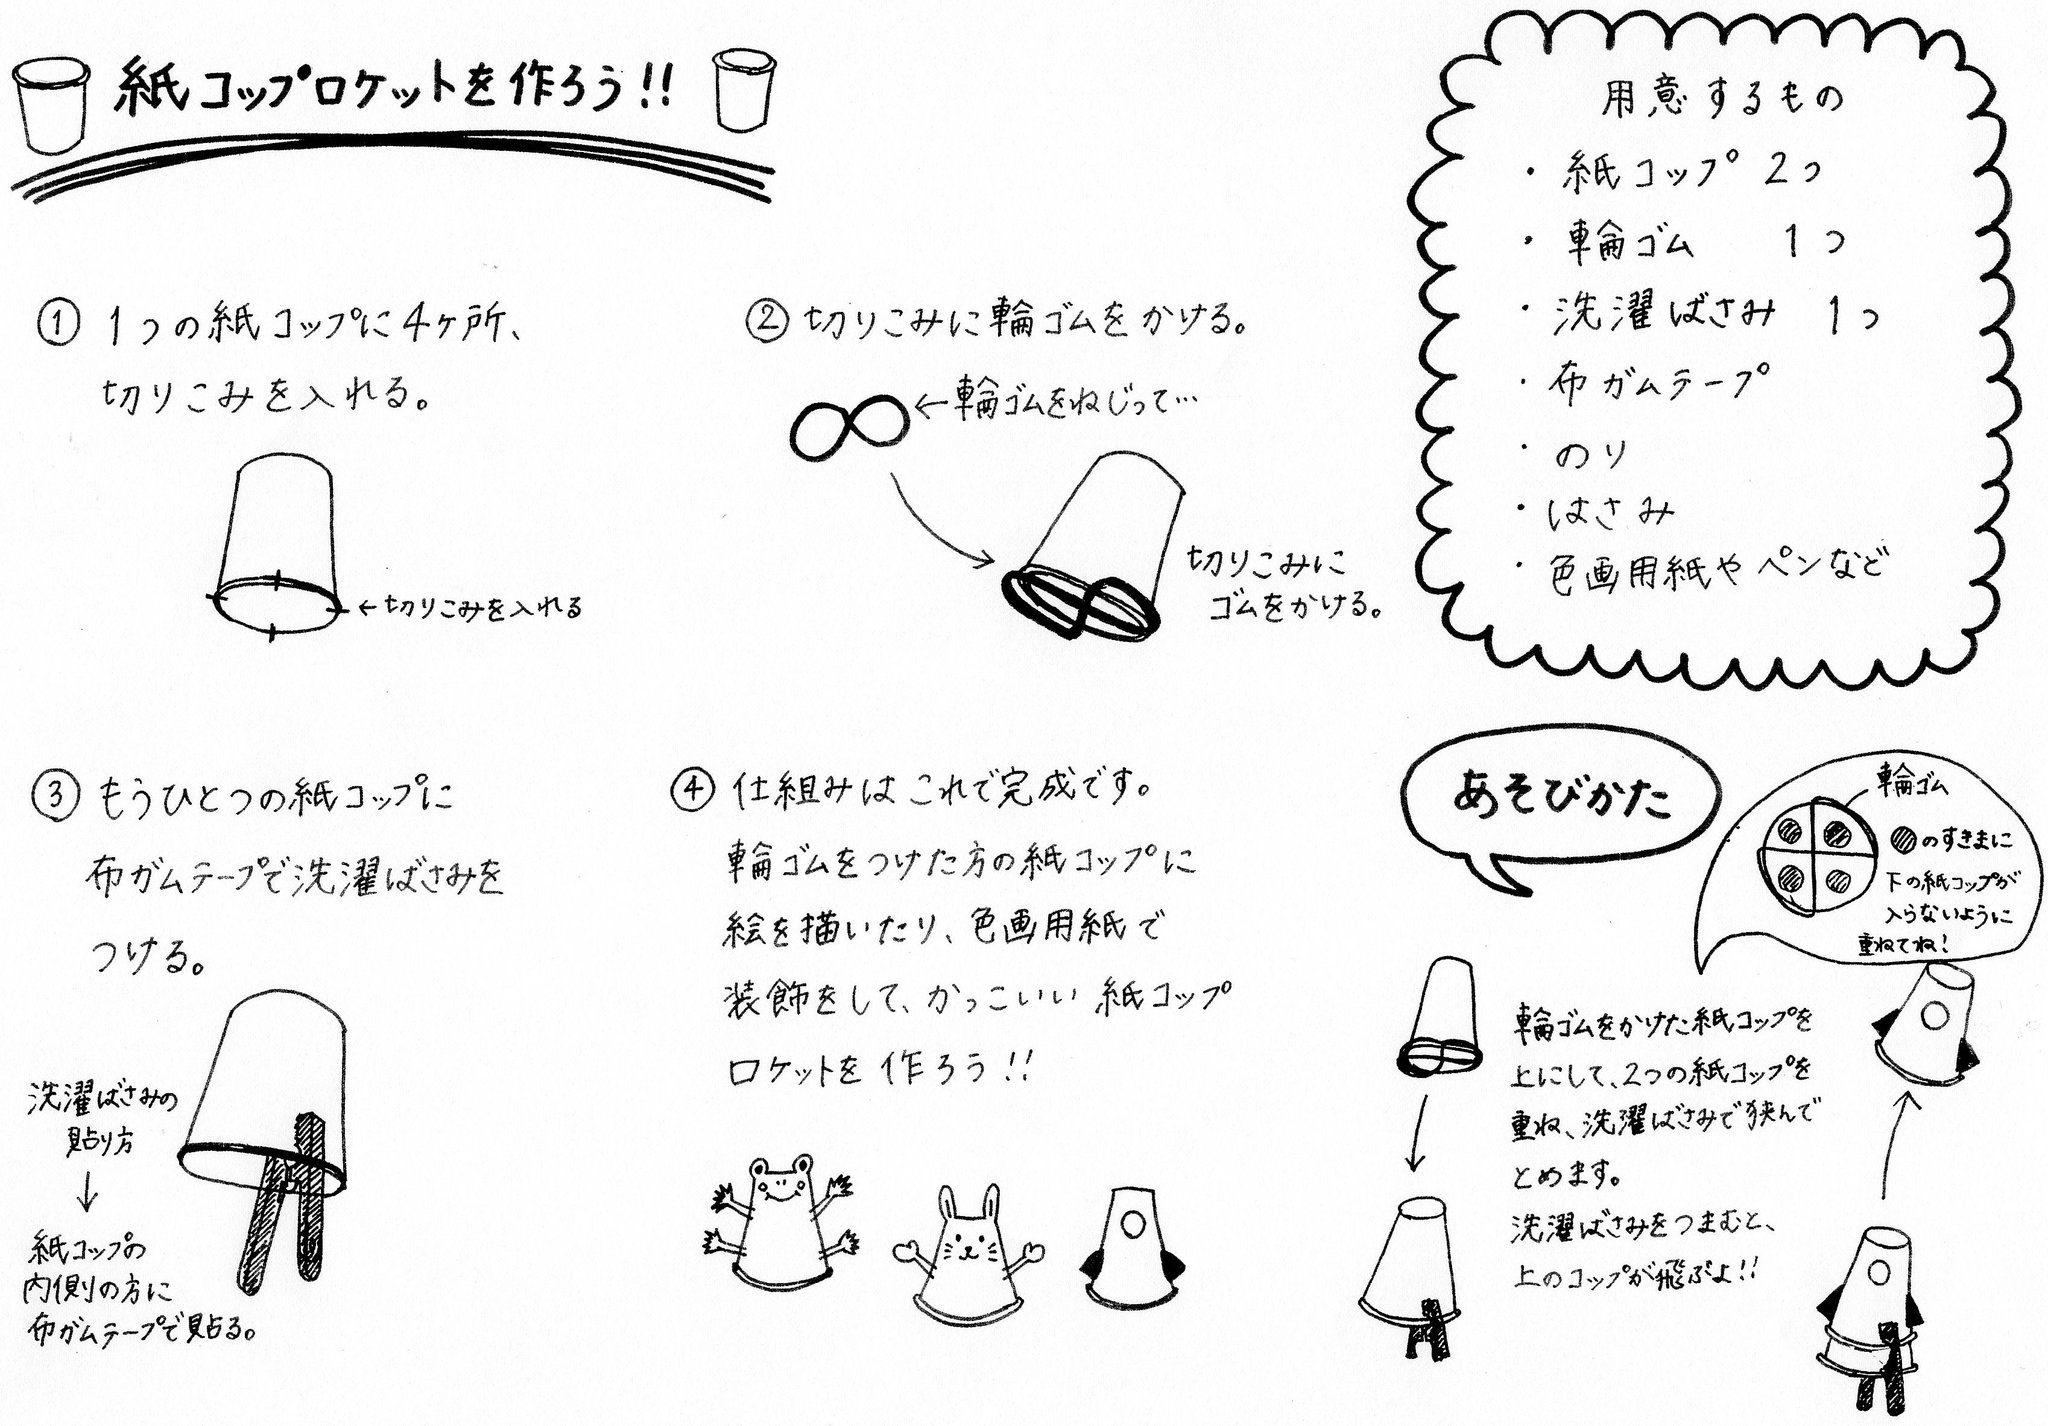 紙コップロケットを作ろう!!
用意するもの
・紙コップ 2つ
・輪ゴム 1つ
・洗濯ばさみ 1つ
・布ガムテープ
・のり
・はさみ
・色画用紙やペンなど
① 1つの紙コップに4ヶ所、
切りこみを入れる。
←切りこみを入れる
② 切りこみに輪ゴムをかける。
←輪ゴムをねじって…
切りこみに
ゴムをかける。
③ もうひとつの紙コップに
布ガムテープで洗濯ばさみを
つける。
洗濯ばさみの
貼り方
↓
紙コップの
内側の方に
布ガムテープで貼る。
④ 仕組みはこれで完成です。
輪ゴムをつけた方の紙コップに
絵を描いたり、色画用紙で
装飾をして、かっこいい紙コップ
ロケットを作ろう!!
あそびかた
輪ゴム
●のすきまに
下の紙コップが
入らないように
重ねてね!
輪ゴムをかけた紙コップを
上にして、2つの紙コップを
重ね、洗濯ばさみで挟んで
とめます。
洗濯ばさみをつまむと、
上のコップが飛ぶよ!!